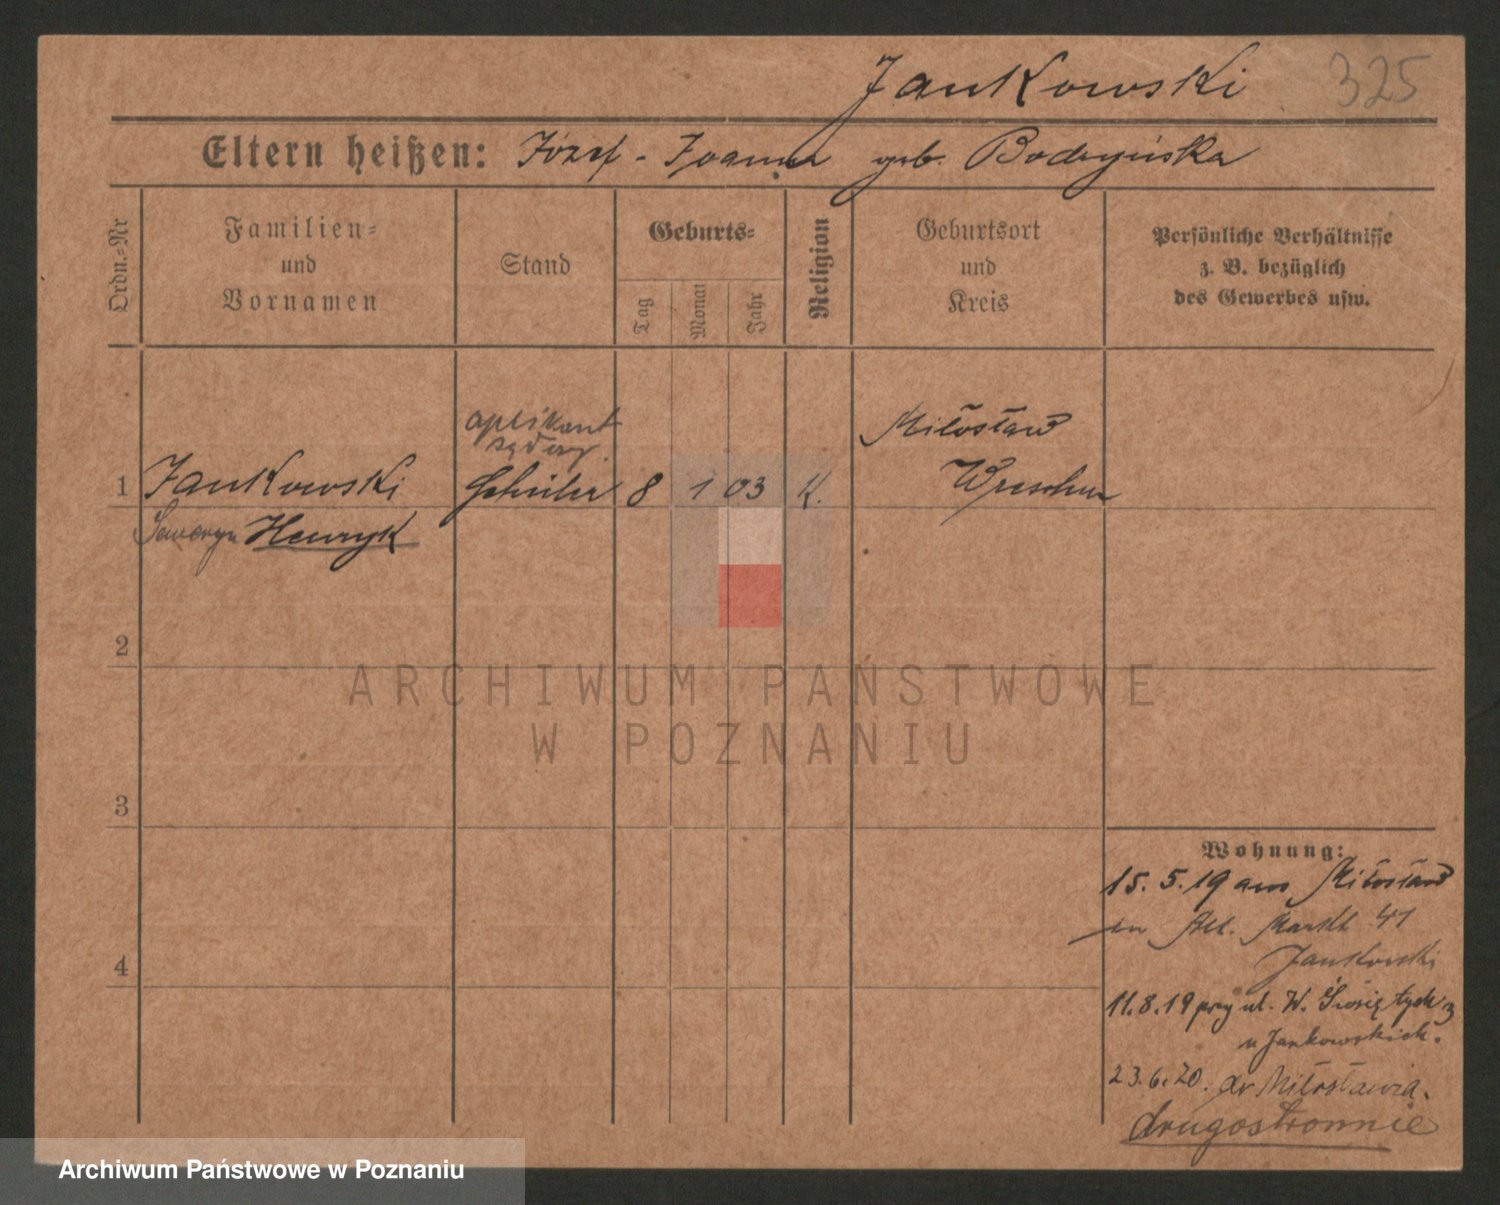 Jankowski 325
Eltern heißen: Józef - Joanna geb. Bodzyńska
Ordn.=Nr
Familien=
und
Vornamen
Stand
Geburts=
Tag
Monat
Jahr
Religion
Geburtsort
und
Kreis
Persönliche Verhältnisse
z. B. bezüglich
des Gewerbes usw.
aplikant
sądowy.
Miłosław
1 Jankowski Schüler 8 1 03 K. Wreschen
Seweryn Henryk
2
3
4
Wohnung:
15. 5. 19 aus Miłosław
in Alt. Markt 41
Jankowski
11. 8. 19 przy ul. W. Świętych 3
u Jankowskich.
23. 6. 20. do Miłosławia.
drugostronnie
ARCHIWUM PAŃSTWOWE
W POZNANIU
Archiwum Państwowe w Poznaniu